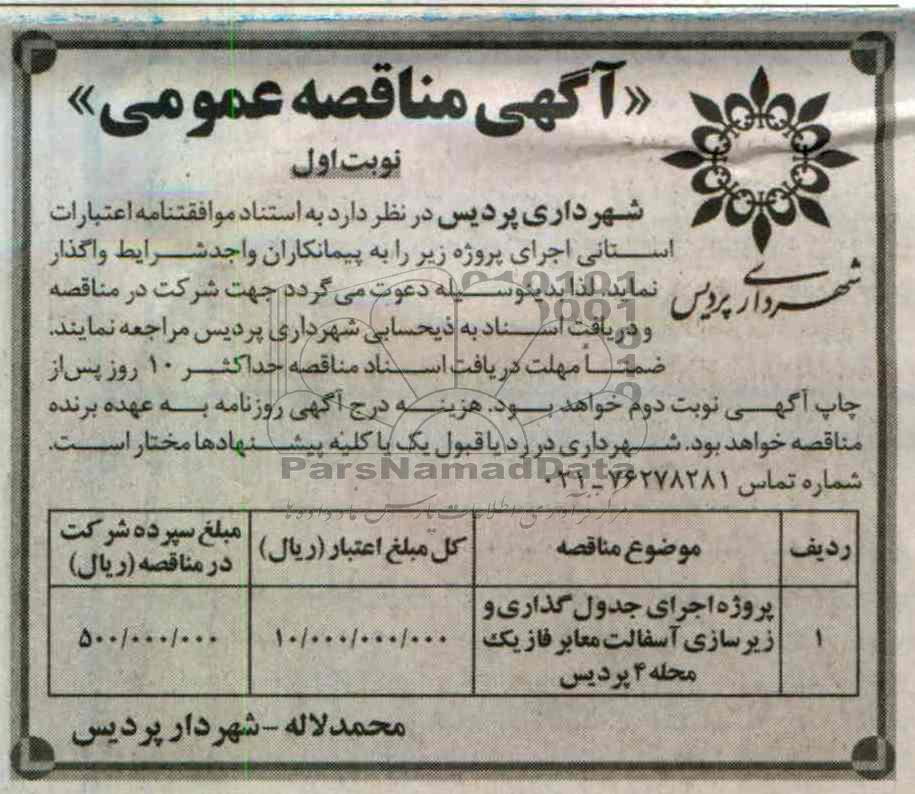 «آگهی مناقصه عمومی»
نوبت اول
شهرداری پردیس
شهرداری پردیس در نظر دارد به استناد موافقتنامه اعتبارات
استانی اجرای پروژه زیر را به پیمانکاران واجد شرایط واگذار
نماید. لذا بدینوسیله دعوت می گردد جهت شرکت در مناقصه
و دریافت اسناد به ذیحسابی شهرداری پردیس مراجعه نمایند.
ضمناً مهلت دریافت اسناد مناقصه حداکثر ۱۰ روز پس از
چاپ آگهی نوبت دوم خواهد بود. هزینه درج آگهی روزنامه به عهده برنده
مناقصه خواهد بود. شهرداری در رد یا قبول یک یا کلیه پیشنهادها مختار است.
شماره تماس ۷۶۲۷۸۲۸۱-۰۲۱
ParsNamadData
مرکز فرآوری اطلاعات پارس نماد داده ها
ردیف موضوع مناقصه کل مبلغ اعتبار (ریال) مبلغ سپرده شرکت در مناقصه (ریال)
۱ پروژه اجرای جدول گذاری و زیرسازی آسفالت معابر فاز یک محله ۴ پردیس ۱۰/۰۰۰/۰۰۰/۰۰۰ ۵۰۰/۰۰۰/۰۰۰
محمد لاله - شهردار پردیس